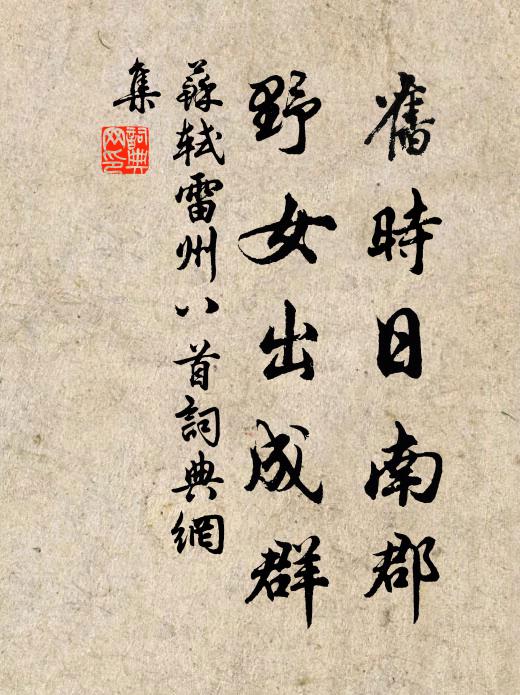 舊時日南郡
野女出成群
蘇軾雷州八首詞典網
集
詞典
网印